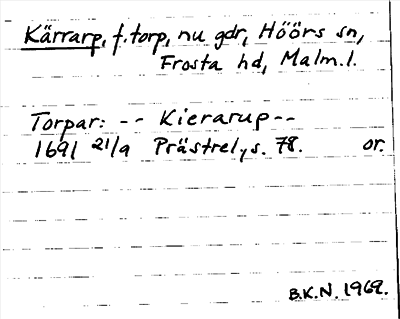 Kärrarp, f. torp, nu gdr, Höörs sn,
Frosta hd, Malm. l.
Torpar: -- Kierarup --
1691 21/9 Prästrel, s. 78. or.
B.K.N. 1969.